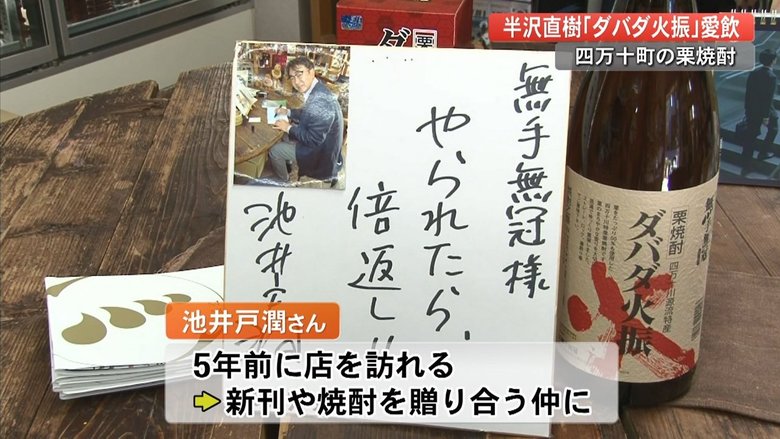 半沢直樹「ダバダ火振」愛飲
四万十町の栗焼酎
無手無冠様
やられたら、
倍返し!!
池井戸潤
栗焼酎
ダバダ火振
四万十川源流特産
無手無冠
池井戸潤さん
5年前に店を訪れる
⇒新刊や焼酎を贈り合う仲に